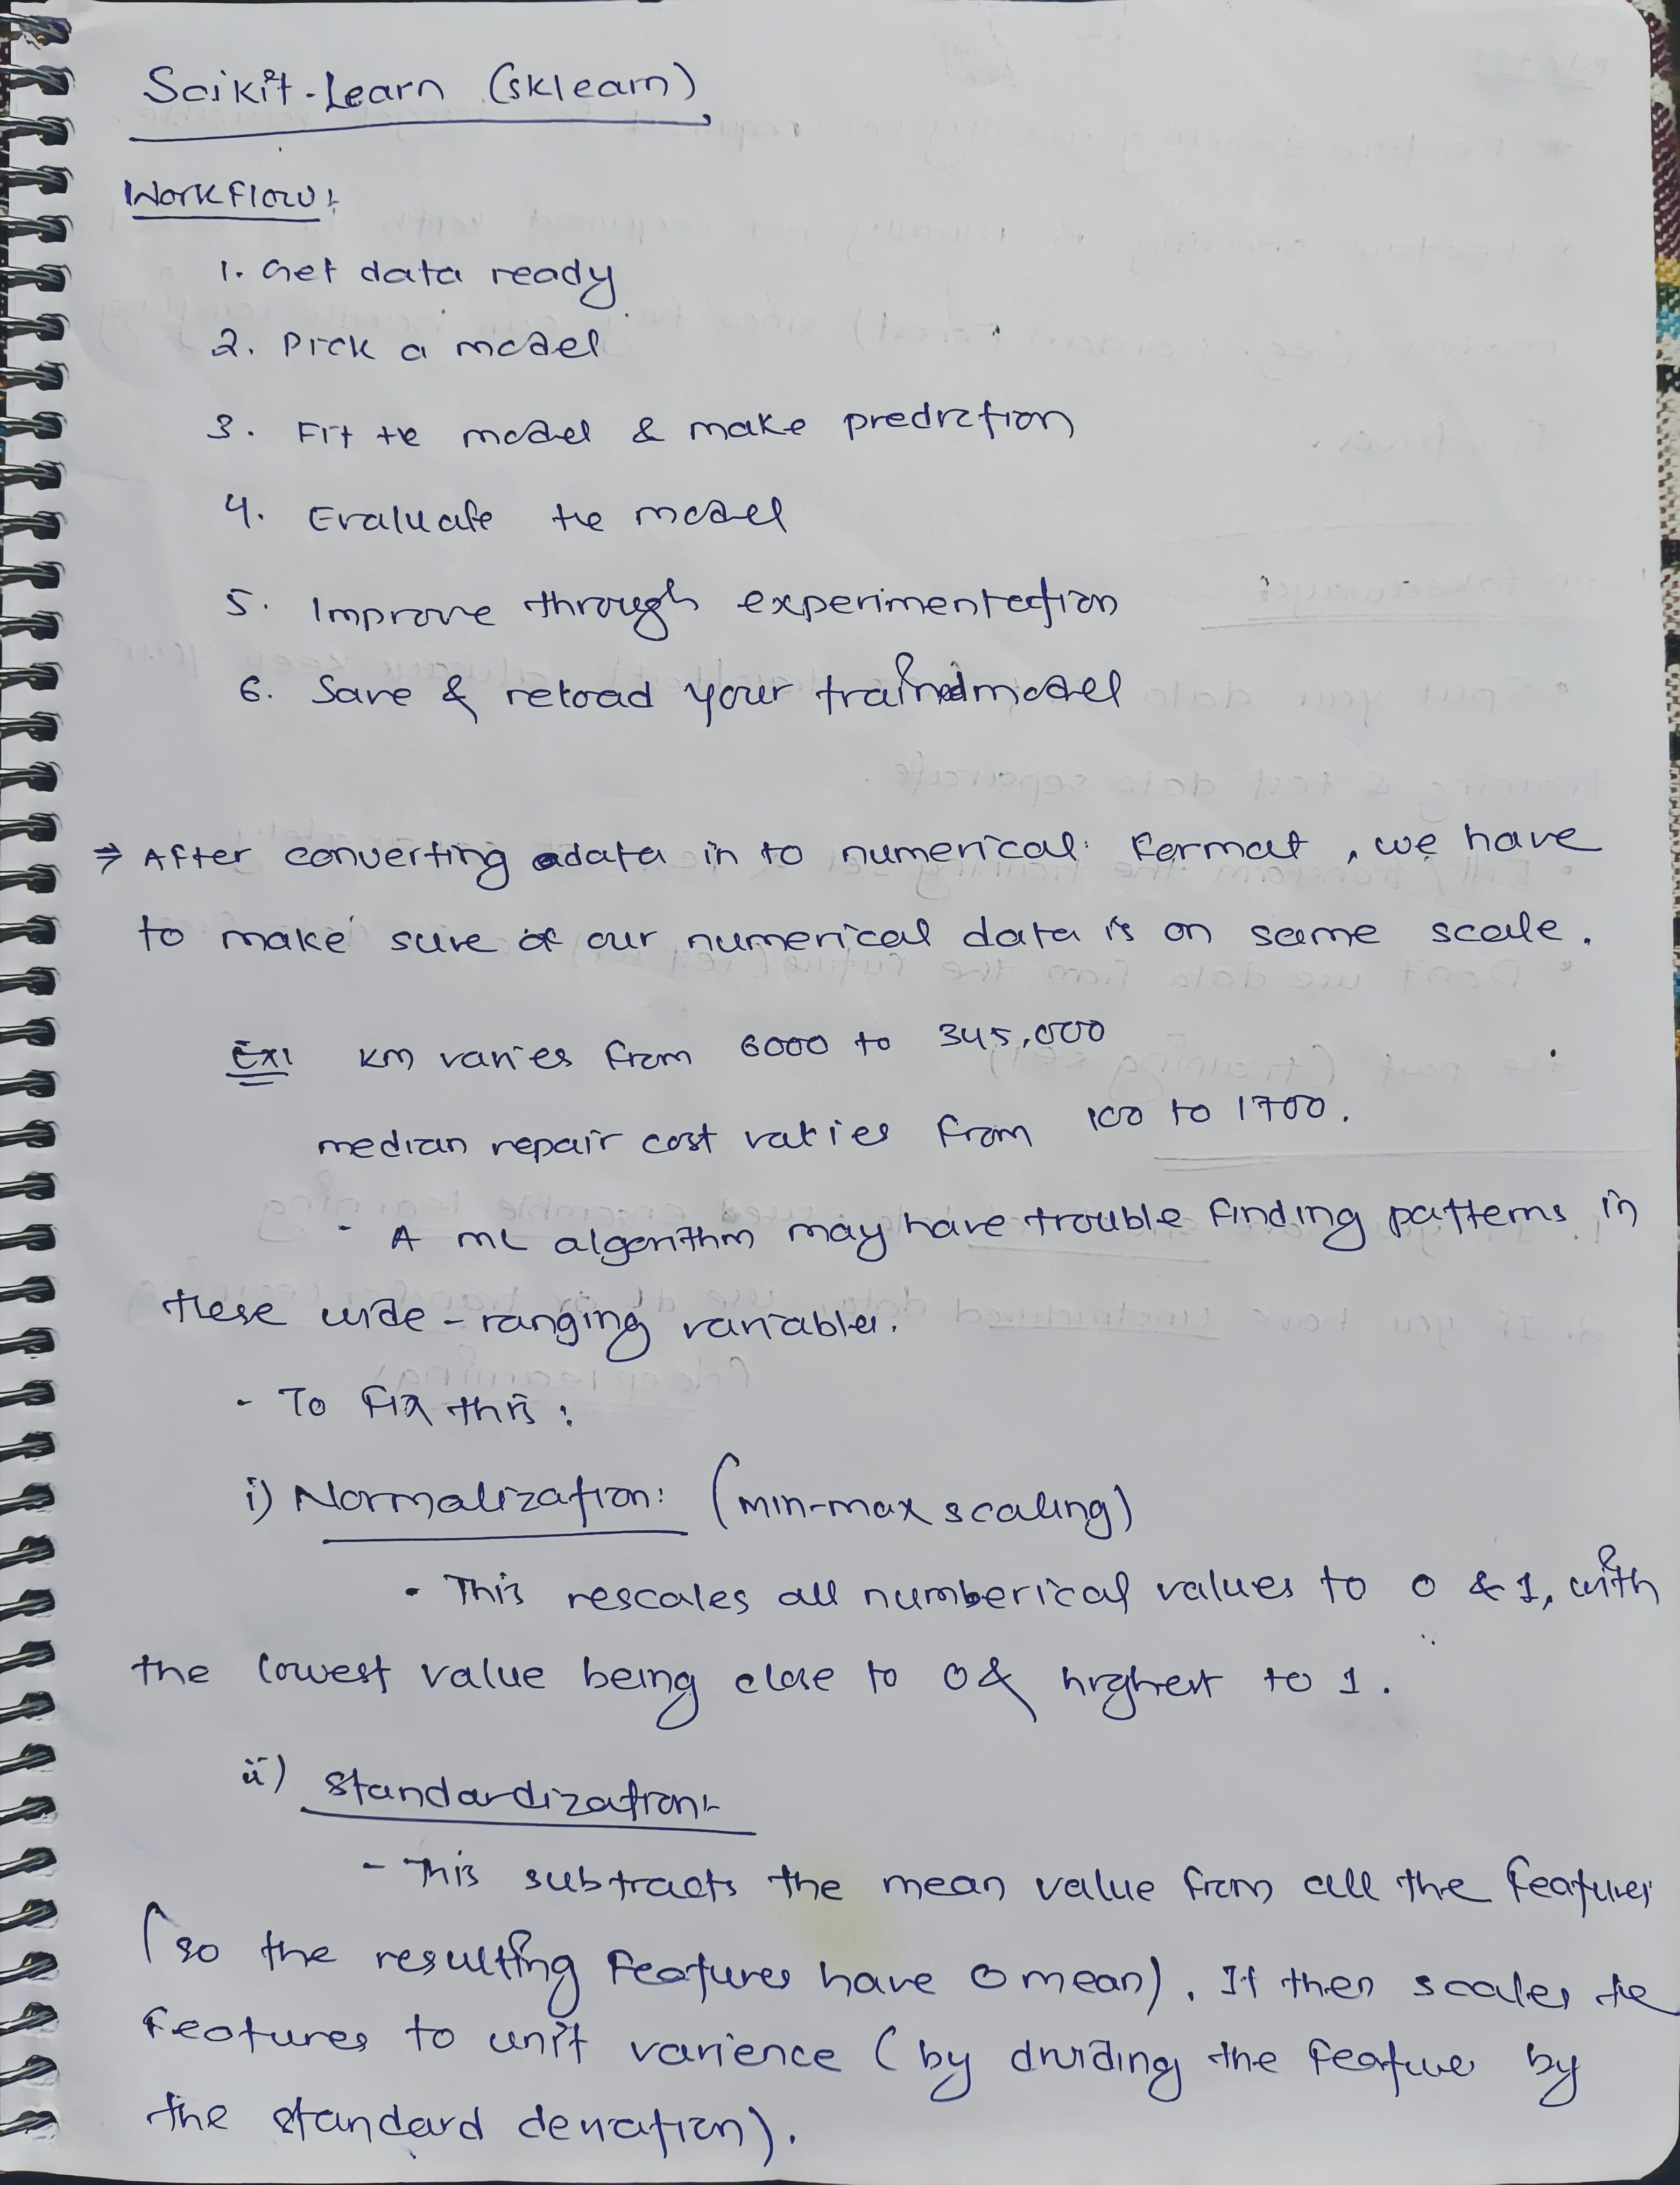 Scikit-Learn (sklearn)
Workflow:
1. Get data ready
2. Pick a model
3. Fit the model & make prediction
4. Evaluate the model
5. Improve through experimentation
6. Save & reload your trained model
⇒ After converting data in to numerical format, we have
to make sure of our numerical data is on same scale.
Ex: km varies from 6000 to 345,000
median repair cost varies from 100 to 1700.
- A ML algorithm may have trouble finding patterns in
these wide-ranging variables.
- To Fix this:
i) Normalization: (min-max scaling)
• This rescales all numberical values to 0 & 1, with
the lowest value being close to 0 & highest to 1.
ii) Standardization:-
- This subtracts the mean value from all the features
(so the resulting features have 0 mean). It then scales the
features to unit varience (by dividing the feature by
the standard deviation).